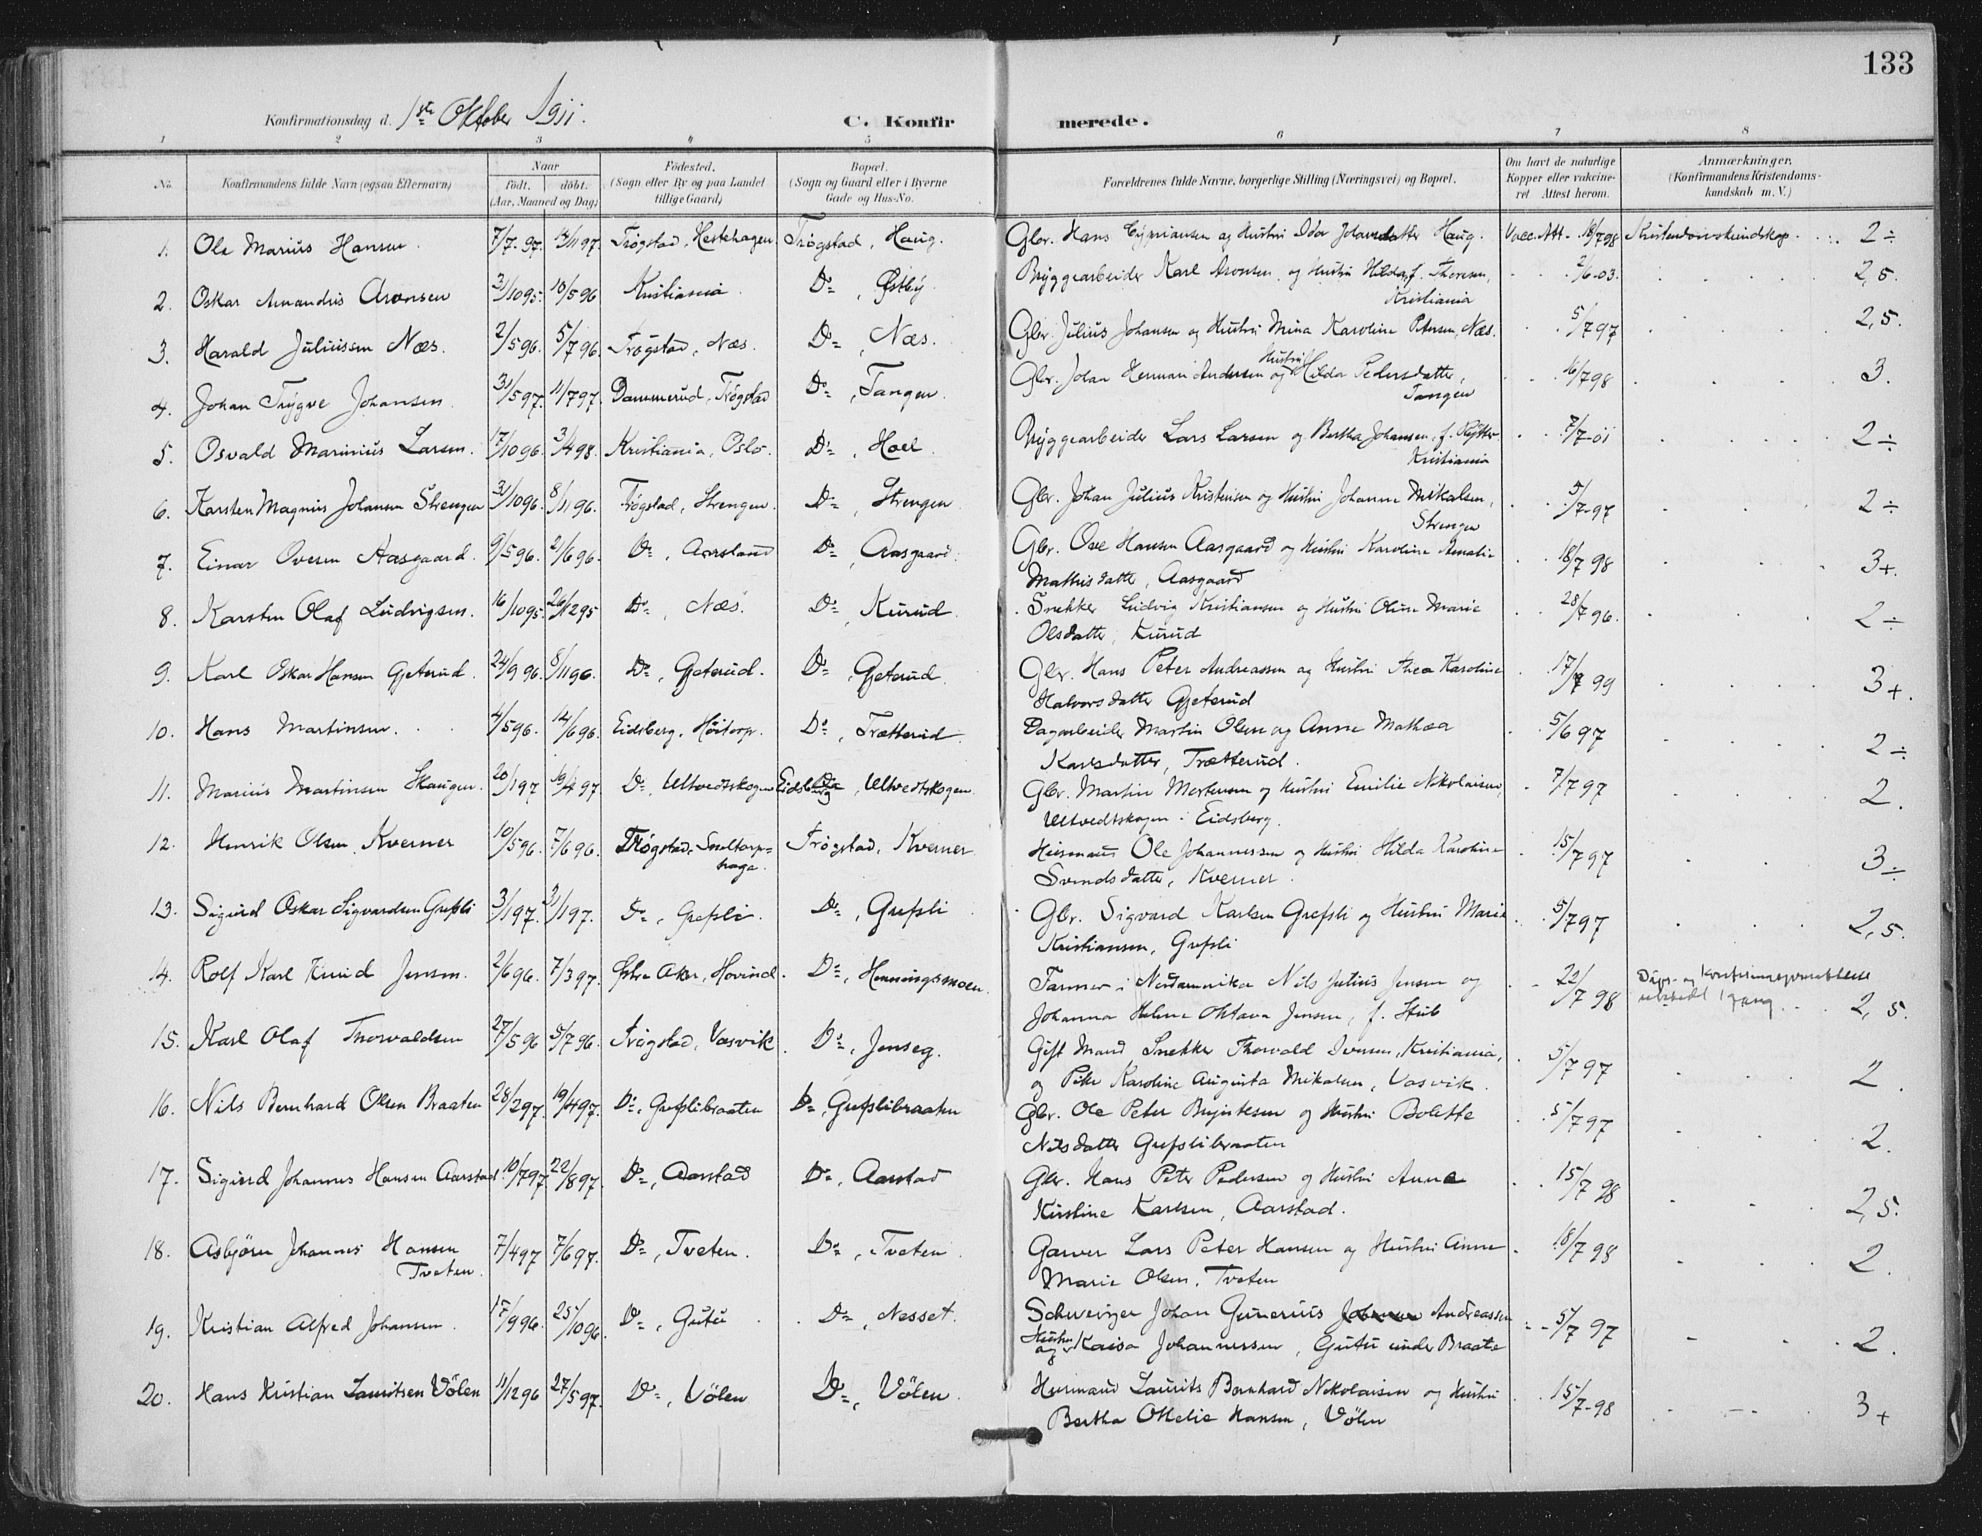 133
Konfirmationsdag d. 1ste Oktober 1911. C. Konfirmerede.
1 2 3 4 5 6 7 8
No. Konfirmandens fulde Navn (ogsaa Efternavn) Naar født. døbt. (Aar, Maaned og Dag) Fødested. (Sogn eller By og paa Landet tillige Gaard) Bopæl. (Sogn og Gaard eller i Byerne Gade og Hus-No. Forældrenes fulde Navne, borgerlige Stilling (Næringsvei) og Bopæl. Om havt de naturlige Kopper eller vakcineret Attest herom. Anmærkninger. (Konfirmandens Kristendomskundskab m. V.)
1. Ole Marius Hansen 7/7.97. 14/11 97. Trøgstad, Hestehagen Trøgstad, Haug. Gbr. Hans Cypriansen og Hustru Ida Johansdatter Haug. Vacc. Att. 16/7 98 Kristendomskundskap 2÷
2. Oskar Amandus Aronsen 31/10 95. 10/5 96 Kristiania Do, Østby Bryggearbeider Karl Aronsen og Hustru Hilda f. Thoresen,
Kristiania 2/6.03. 2,5.
3. Harald Juliussen Næs. 2/5 96. 5/7 96. Trøgstad, Næs. Do, Næs. Gbr. Julius Johansen og Hustru Mina Karoline Petersen, Næs. 5/7 97 2,5.
4. Johan Trygve Johansen 31/5 97. 11/7 97. Dammerud, Trøgstad Do, Tangen Gbr. Johan Herman Andersen og Hustru Hilda Pedersdatter,
Tangen 16/7 98 3.
5. Osvald Marinius Larsen. 17/10 96. 3/4 98. Kristiania, Oslo. Do, Hoel. Bryggearbeider Lars Larsen og Bertha Johansen, f.
Kristiania 7/7-01 2÷
6. Karsten Magnus Johansen Strengen 31/10 96. 8/11 96. Trøgstad, Strengen. Do, Strengen Gbr. Johan Julius Kristensen og Hustru Johanne Mikalsen,
Strengen 5/7-97 2÷
7. Einar Ovesen Aasgaard. 9/5 96. 21/6 96. Do, Do, Aasgaard. Gbr. Ove Hansen Aasgaard og Hustru Karoline Amalie
Mathisdatter, Aasgaard 18/7 98 3+.
8. Karsten Olaf Ludvigsen. 16/10 95. 26/12 95 Do, Næs. Do, Kurud. Snekker Ludvig Kristiansen og Hustru Oline Marie
Olsdatter, Kurud 28/7 96. 2÷
9. Karl Oskar Hansen Gjeterud. 24/9 96. 8/11 96. Do, Gjeterud. Do, Gjeterud. Gbr. Hans Peter Andreassen og Hustru Thea Karoline
Halvorsdatter Gjeterud 17/7 99 3+.
10. Hans Martinsen. 4/5 96. 14/6 96. Eidsberg, Høitorp. Do, Trætterud. Dagarbeider Martin Olsen og Anne Mathea
Karlsdatter, Trætterud. 5/6 97 2÷
11. Marius Martinsen Skaugen. 20/1 97 19/4 97. Do, Ultvedtskogen Eidsberg, Ultvedtskogen. Gbr. Martin Mortensen og Hustru Emilie Nikolaisen,
Ultvedtskogen i Eidsberg. 7/7 97 2.
12. Henrik Olsen Kverner 10/5 96. 7/6 96. Trøgstad, Smeltorp=
haga. Trøgstad, Kverner Husmand Ole Johannessen og Hustru Hilda Karoline
Svendsdatter, Kverner. 15/7 97 3÷
13. Sigurd Oskar Sigvardsen Grefsli 3/1 97. 31/1 97. Do, Grefsli. Do, Grefsli Gbr. Sigvard Karlsen Grefsli og Hustru Marie
Kristiansen, Grefsli 5/7 97 2,5.
14. Rolf Karl Knud Jensen. 2/6 96. 7/3 97. Østre Aker, Hovind. Do, Henningsmoen Farmer i Nordamerika Nils Julius Jensen og
Johanna Helene Oktava Jensen, f. Stub 22/7 98 Daps- og Konfirmasjonsattest
utstedt 1 gang. 2,5.
15. Karl Olaf Thorvaldsen 27/5 96 5/7 96. Trøgstad, Vasvik. Do, Jenseg. Gift Mand, Snekker Thorvald Iversen, Kristiania,
og Pike Karoline Augusta Mikalsen, Vasvik. 5/7 97 2.
16. Nils Bernhard Olsen Braaten 28/2 97. 19/4 97. Do, Grefslibraaten Do, Grefslibraaten Gbr. Ole Peter og Hustru Bolette
Nilsdatter Grefslibraaten 5/7 97 2.
17. Sigurd Johannes Hansen Aarstad 10/7 97 22/8 97. Do, Aarstad Do, Aarstad Gbr. Hans Peter Pedersen og Hustru Anna
Kirstine Karlsen, Aarstad. 15/7 98 2,5.
18. Asbjørn Johannes Hansen
Tveten. 7/4 97 7/6 97. Do, Tveten. Do, Tveten. Garver Lars Peter Hansen og Hustru Anne
Marie Olsen, Tveten 18/7 98 2.
19. Kristian Alfred Johansen. 17/9 96. 25/10 96. Do, Gutu Do, Nesset. Schweizer Johan Gunerius Andreassen
og Hustru Kaisa Johannessen, Gutu under Braate 5/7 97 2.
20. Hans Kristian Lauritsen Vølen 11/12 96 27/5 97. Do, Vølen Do, Vølen. Husmand Laurits Bernhard Nikolaisen og Hustru
Bertha Othelie Hansen, Vølen 15/7-98 3+